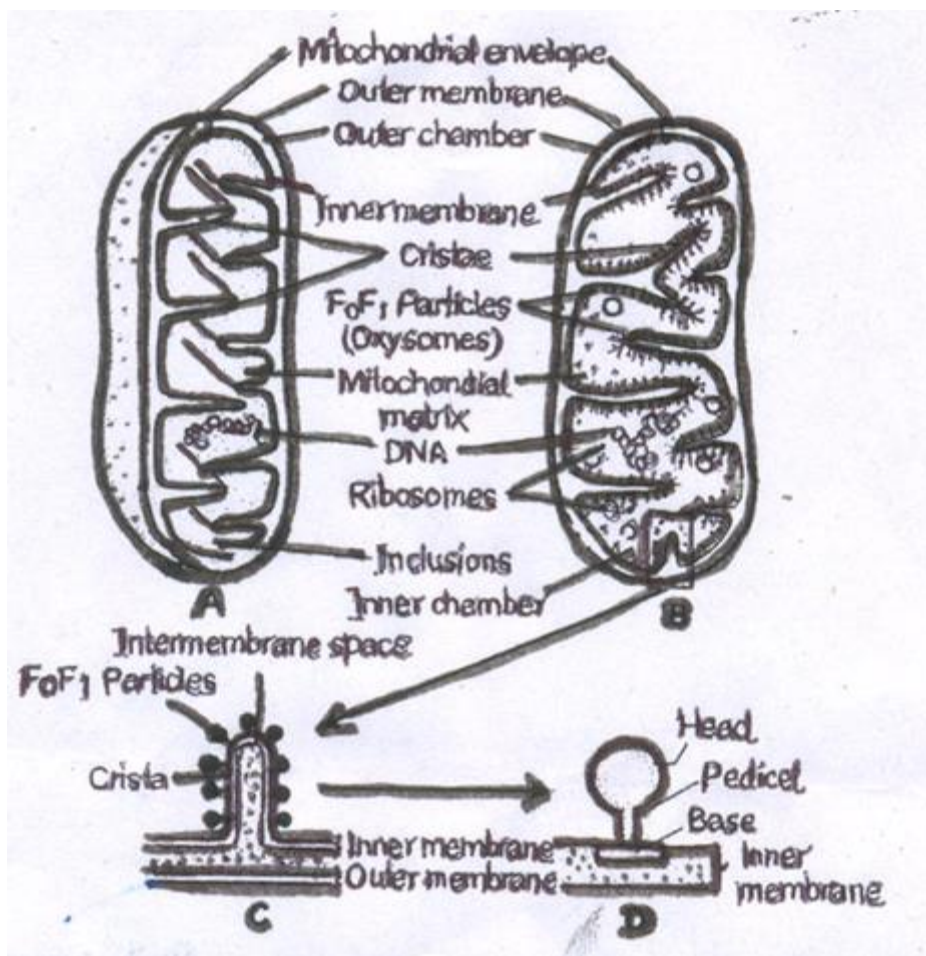 Mitochondrial envelope
Outer membrane
Outer chamber
Inner membrane
Cristae
F0F1 Particles
(Oxysomes)
Mitochondrial
matrix
DNA
Ribosomes
Inclusions
Inner chamber
A
B
Intermembrane space
F0F1 Particles
Crista
Inner membrane
Outer membrane
C
Head
Pedicel
Base
Inner
membrane
D